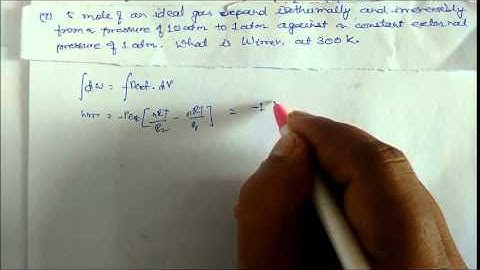 (7) 5 mole of an ideal gas expand isothermally and irreversibly
from a pressure of 10 atm to 1 atm against a constant external
pressure of 1 atm. What is Wirrev. at 300 K.
∫dw = ∫Pext. dV
wirr = -Pex [nRT/P2 - nRT/P1] = -1